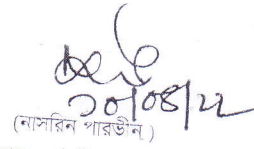 ১০/০৪/২২
(নাসরিন পারভীন)